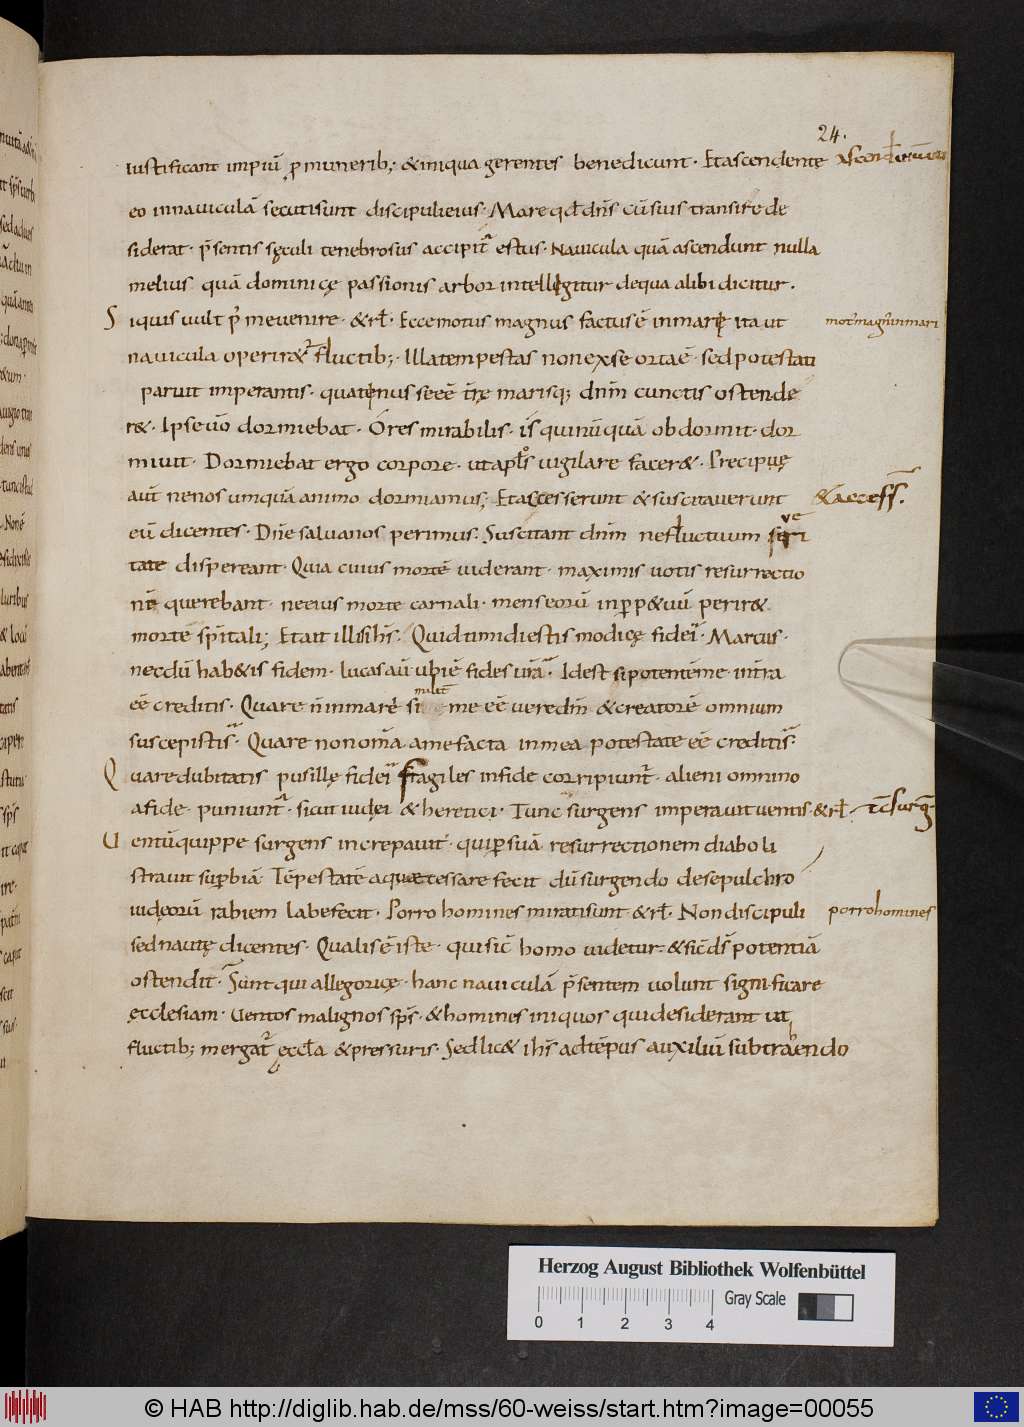 24.
iustificant impiū ꝓ munerib; &iniqua gerentes benedicunt. Etascendentę
eo innauiculā secutisunt discipulieius. Mare qd̄ dn̄s cū suis transire de
siderat. p̄sentis sęculi tenebrosus accipit᷑ estus. Nauicula quā ascendunt nulla
melius quā dominicę passionis arbor intelligitur dequa alibi dicitur.
Siquis uult p̓ me uenire. &rł. Ecce motus magnus factus ē in mari ita ut
motꝰ magnꝰ inmari
nauicula operir&᷑ fluctib;. Illa tempestas non exse orta ē. sed potestati
paruit imperantis. quatenus se eē tr̄ę marisq; dn̄m cunctis ostende
r&. Ipse uō dormiebat. O res mirabilis. is qui nūquā obdormit. dor
miuit. Dormiebat ergo corpore. ut apłos uigilare facer&. Precipuę
aūt ne nos umquā animo dormiamus; Et accesserunt & suscitauerunt
&access̄.
eū dicentes. Dn̄e salua nos perimus. Suscitant dn̄m ne fluctuum
tate dispereant. Quia cuius mortē uiderant. maximis uotis resurrectio
nē querebant. ne eius morte carnali. mens eorū in ꝑp&uū perir&
morte sp̄itali; Et ait illis ih̄s. Quid timidi estis modicę fidei. Marcus.
necdū hab&is fidem. lucas aū ubi ē fides ur̄a. Idest si potentē me intra
eē creditis. Quare n̄ in mare si me eē uere dm̄ & creatorē omnium
suscepistis. Quare non om̄a a me facta in mea potestate eē creditis.
Quare dubitatis pusillę fidei fragiles in fide corripiunt᷑. alieni omnino
a fide puniunt᷑. sicut iudei & heretici. Tunc surgens imperauit uentis. &rł.
tc̄ surḡ.
Uentū quippe surgens increpauit. qui ꝑ suā resurrectionem diaboli
strauit suꝑbiā. Tēpestatē aquae cessare fecit dū surgendo de sepulchro
iudęorū rabiem labefecit. Porro homines mirati sunt &rł. Non discipuli
porro homines
sed nautę dicentes. Qualis ē iste. qui sic̄ homo uidetur. & sic̄ ds̄ potentiā
ostendit. Sunt qui allegoricę. hanc nauiculā p̄sentem uolunt significare
ęcclesiam. Uentos malignos sp̄s. & homines iniquos qui desiderant ut
fluctib; mergat᷑ ęccła & pressuris. Sed lic& ih̄s ad tēpus auxiliū subtrahendo
Herzog August Bibliothek Wolfenbüttel
Gray Scale
0 1 2 3 4
© HAB http://diglib.hab.de/mss/60-weiss/start.htm?image=00055